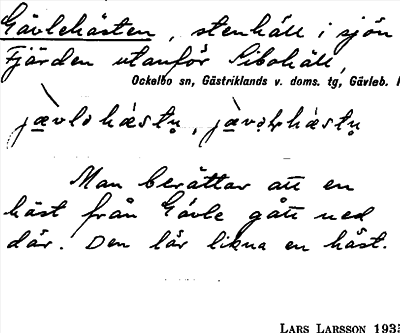 Gävlehästen, stenhäll i sjön
Fjärden utanför Sibohäll,
Ockelbo sn, Gästriklands v. doms. tg, Gävleb.
Man berättar att en
häst från Gävle gått ned
där. Den lär likna en häst.
LARS LARSSON 1935